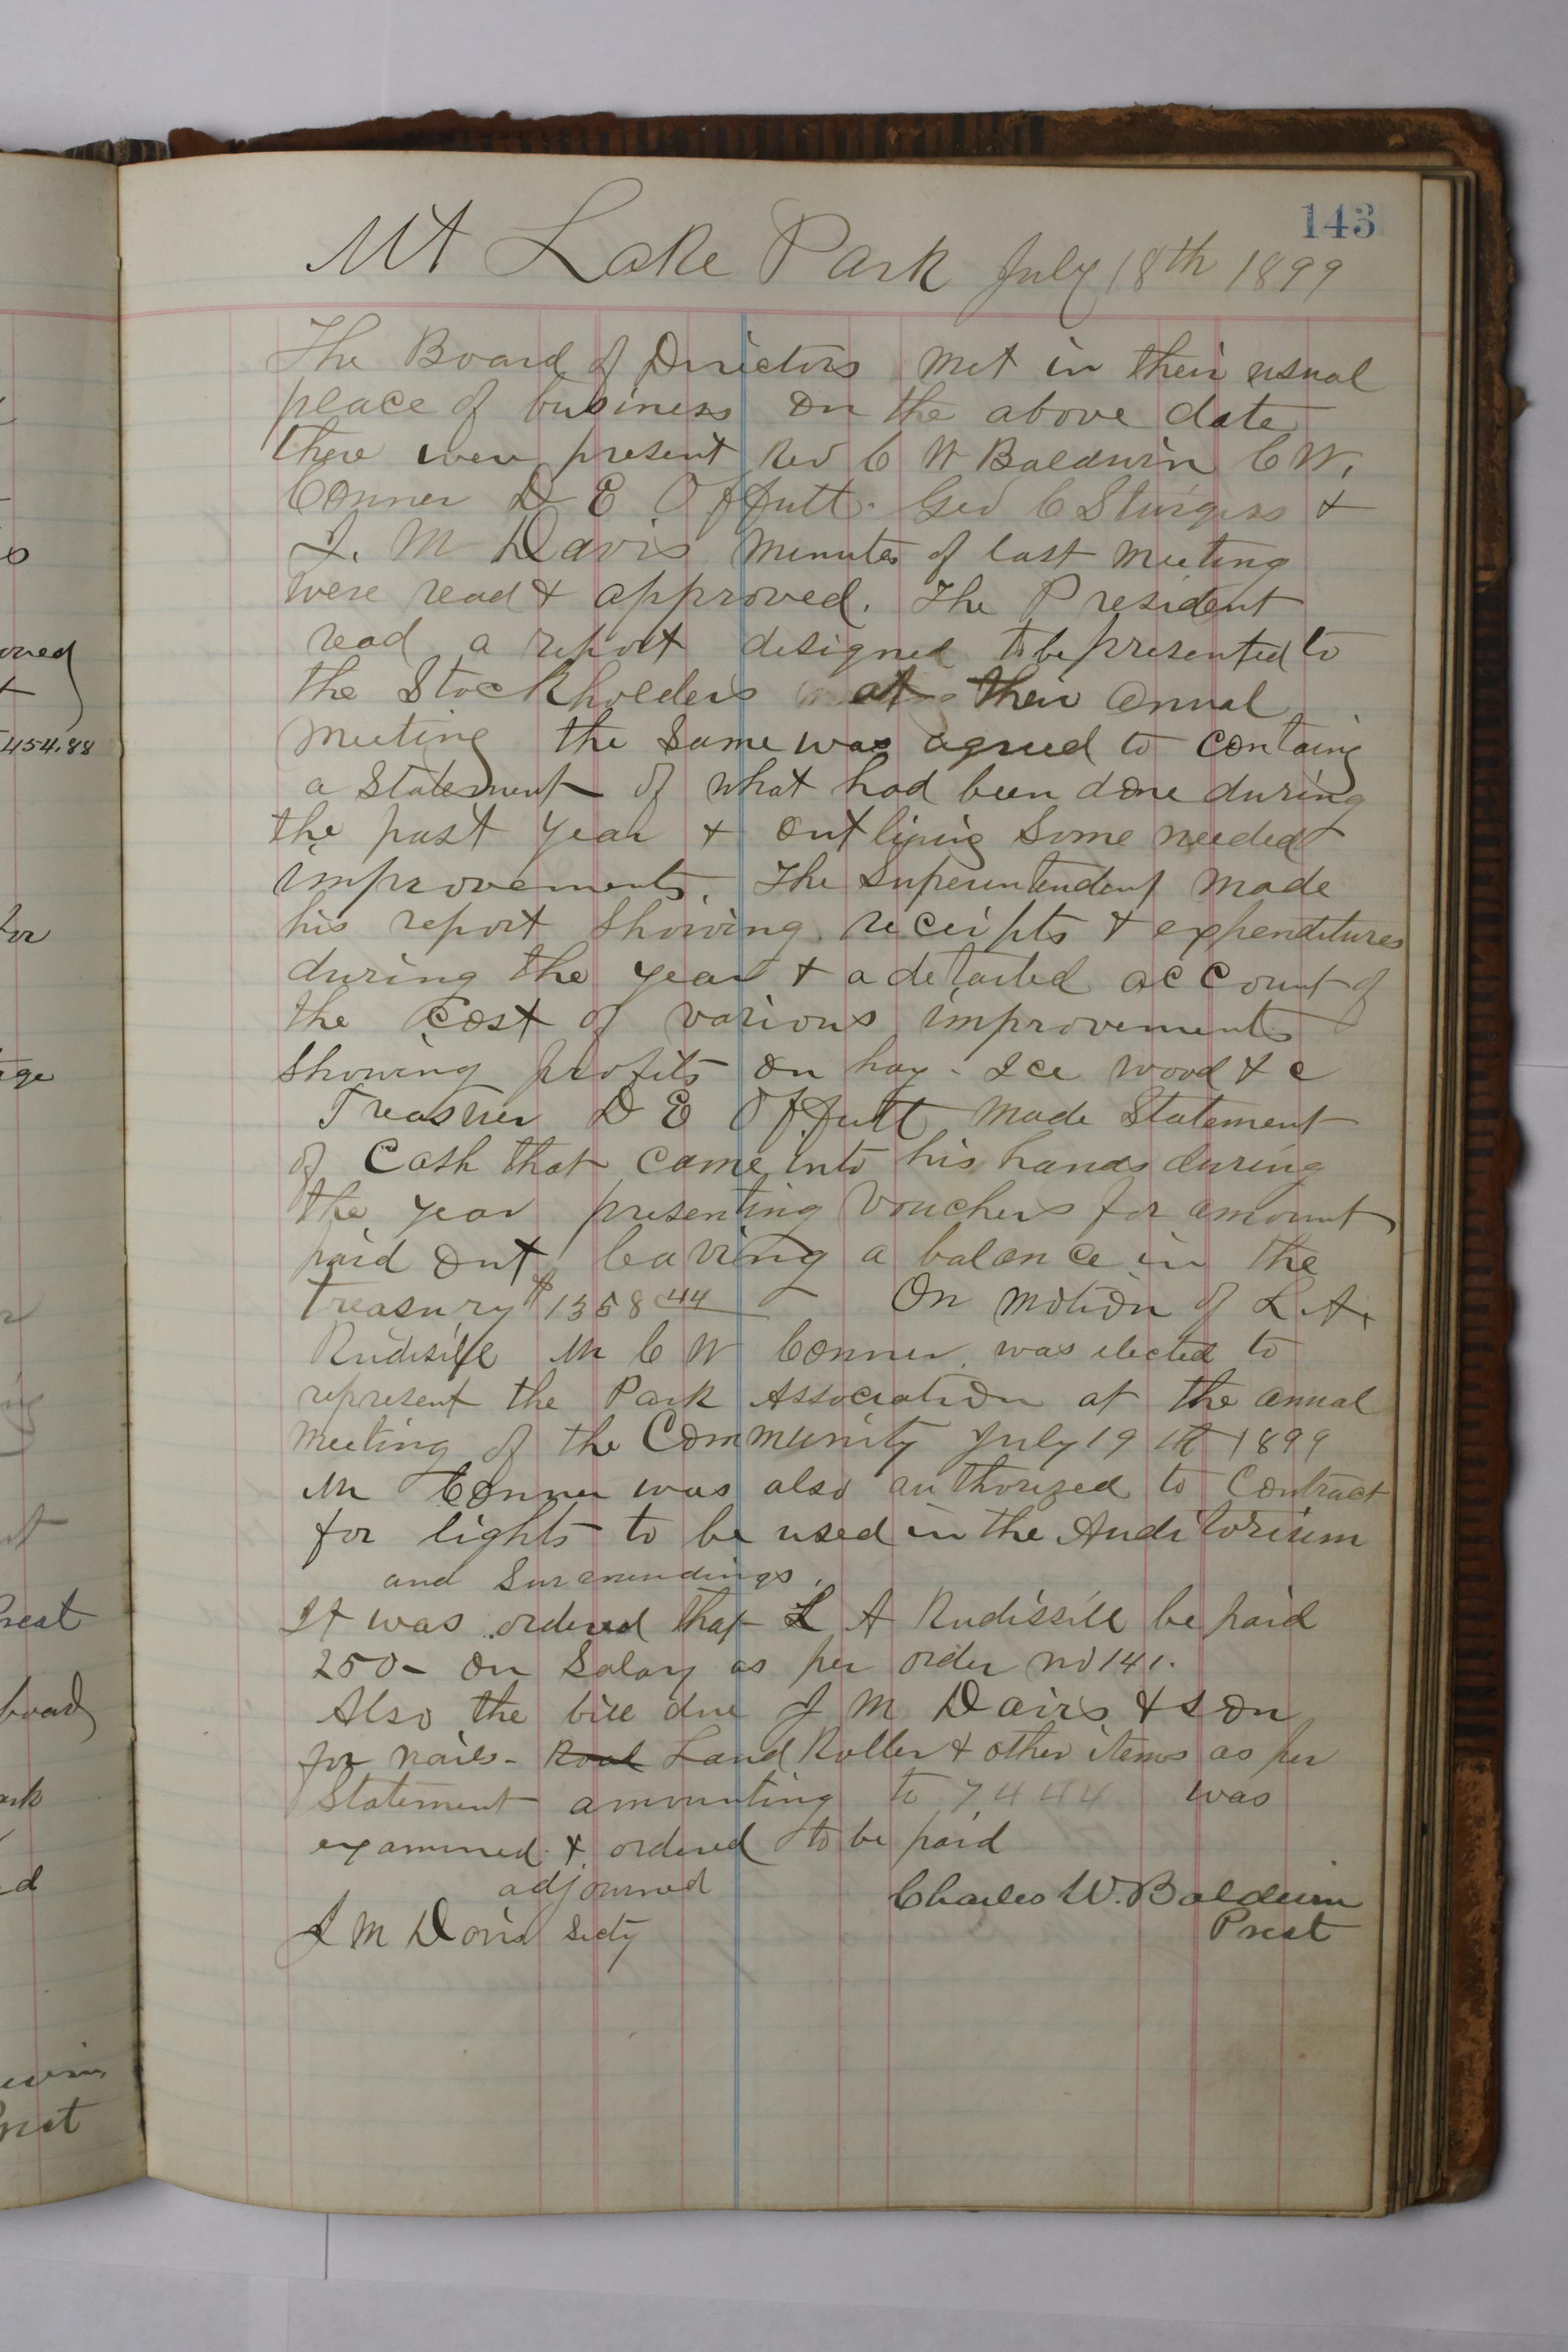 143
Mt Lake Park July 18th 1899
The Board of Directors met in their usual
place of business on the above date
there were present Rev C W Baldwin C W.
Conner D E Offutt. Geo C Sturgiss &
J. M Davis minutes of last meeting
were read & approved. The President
read a report designed to be presented to
the Stockholders at their annual
meeting the same was agreed to containg
a statement of what had been done during
the past year & outlining some needed
improvements. The Superintendent made
his report showing receipts & expenditures
during the year & a detailed account of
the cost of various improvements
showing profits on hay - Ice wood & c
Treasurer D E Offutt made statement
of Cash that came into his hands during
the year presenting vouchers for amount
paid out leaving a balance in the
Treasury $1358 44 On motion of L A.
Rudisill Mr C W Conner was elected to
represent the Park Association at the annual
meeting of the Community July 19th 1899
Mr Conner was also authorized to contract
for lights to be used in the Auditorium
and Surroundings.
It was ordered that L A Rudissill be paid
250- on Salary as per order no 141.
Also the bill due J M Davis & son
for nails - Land Roller & other items as per
Statement amounting to 7444 was
examined & ordered to be paid
adjourned
J M Davis Secty
Charles W. Baldwin
Prest
oved
454.88
for
age
Prest
board
ark
Prest